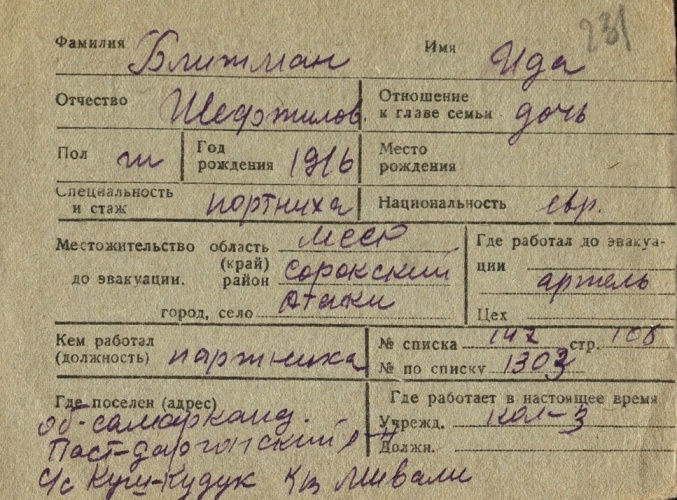 231
Фамилия Ближман Имя Ида
Отчество Шефтилов. Отношение к главе семьи дочь
Пол ж Год рождения 1916 Место рождения
Специальность и стаж портниха Национальность евр.
Местожительство до эвакуации. область (край) МССР
район Сорокский
город, село Атаки
Где работал до эвакуации артель
Цех
Кем работал (должность) партниха
№ списка 142 стр. 106
№ по списку 1303
Где поселен (адрес)
об-самарканд.
Паст-даргомский р-н
с/с Куш-Кудук
Где работает в настоящее время
Учрежд. кол-з
Должн.